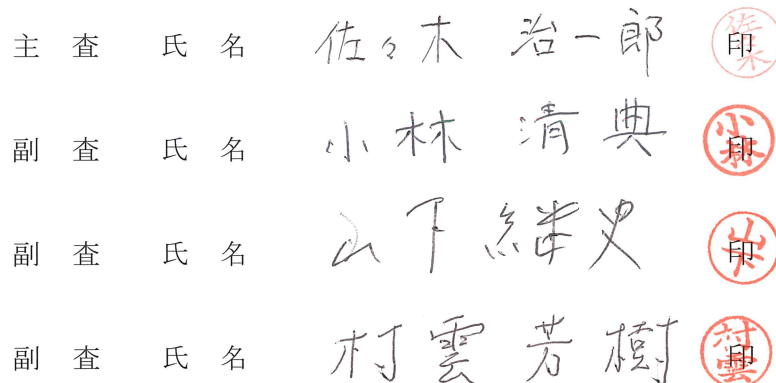 主査 氏名 佐々木 治一郎 印 佐々木
副査 氏名 小林 清典 印 小林
副査 氏名 山下 継史 印 山下
副査 氏名 村雲 芳樹 印 村雲